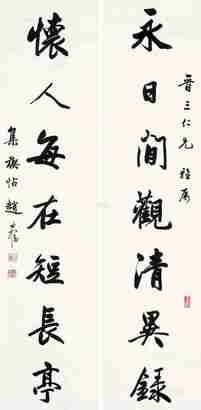 晉三仁兄雅屬
永日間觀清異錄
懷人每在短長亭
集禊帖趙